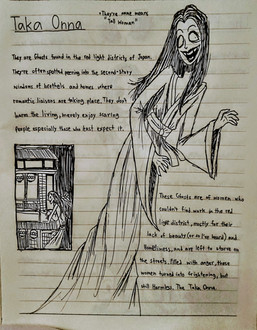 Taka Onna
• They're name means
"Tall Woman"
They are Ghosts found in the red light districts of Japan.
They're often spotted peering into the second-story
windows of brothels and homes where
romantic liaisons are taking place. They don't
harm the living, merely enjoy scaring
people especially those who least expect it.
These Ghosts are of women who
couldn't find work in the red
light district, mostly for their
lack of beauty (or so I've heard) and
loneliness, and are left to starve on
the streets, filled with anger, these
women turned into frightening, but
still harmless. The Taka Onna.